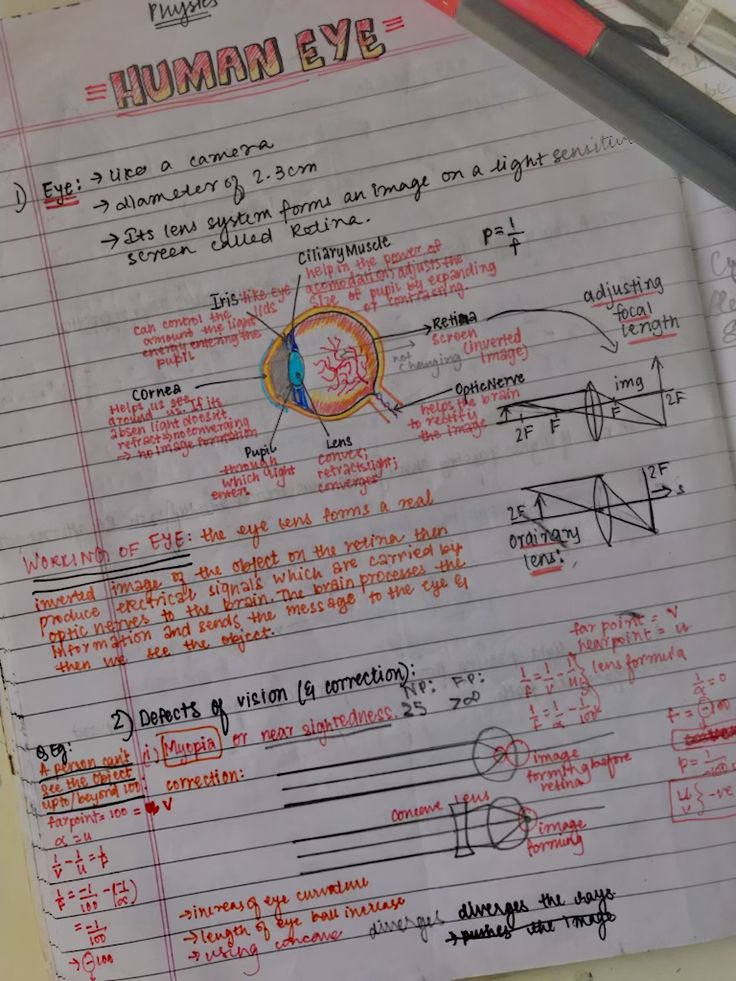 Physics
= HUMAN EYE =
1) Eye: → like a camera
→ diameter of 2.3cm
→ Its lens system forms an image on a light sensitive
screen called Retina.
P = 1/f
Ciliary Muscle
help in the power of
acomodation; adjusts the
size of pupil by expanding
or contracting.
Iris: like eye
lids
can control the
amound the light
energy entering the
pupil
Retina
screen
(inverted
image)
not
changing
adjusting
focal
length
Cornea
Helps us see
around us. If its
absen light doesn't
refract ⇒ no converging
⇒ no image formation
Optic Nerve
helps the brain
to rectify
the image
Pupil
through
which light
enters
Lens
convex;
refracts light;
converges
img
2F F F 2F
2F
2F
ordinary
lens:
WORKING OF EYE: the eye lens forms a real
inverted image of the object on the retina then
produce electrical signals which are carried by
optic nerves to the brain. The brain processes the
information and sends the message to the eye &
then we see the object.
far point = v
near point = u
1/f = 1/v - 1/u } lens formula
1/f = 1/α - 1/100
1/α = 0
f = -100
P = 1/100
u
v } -ve
2) Defects of vision (& correction):
NP: FP:
25 >∞
i) Myopia or near sightedness.
image
forming before
retina
correction:
concave lens
image
forming
Q Eg:
A person can't
see the object
upto/beyond 100
far point = 100 = v
α = u
1/v - 1/u = 1/f
1/f = -1/100 - (-1/α)
= -1/100
→ -100
→ increas of eye curvature
→ length of eye ball increase
→ using concave diverges diverges the rays
→ pushes the image